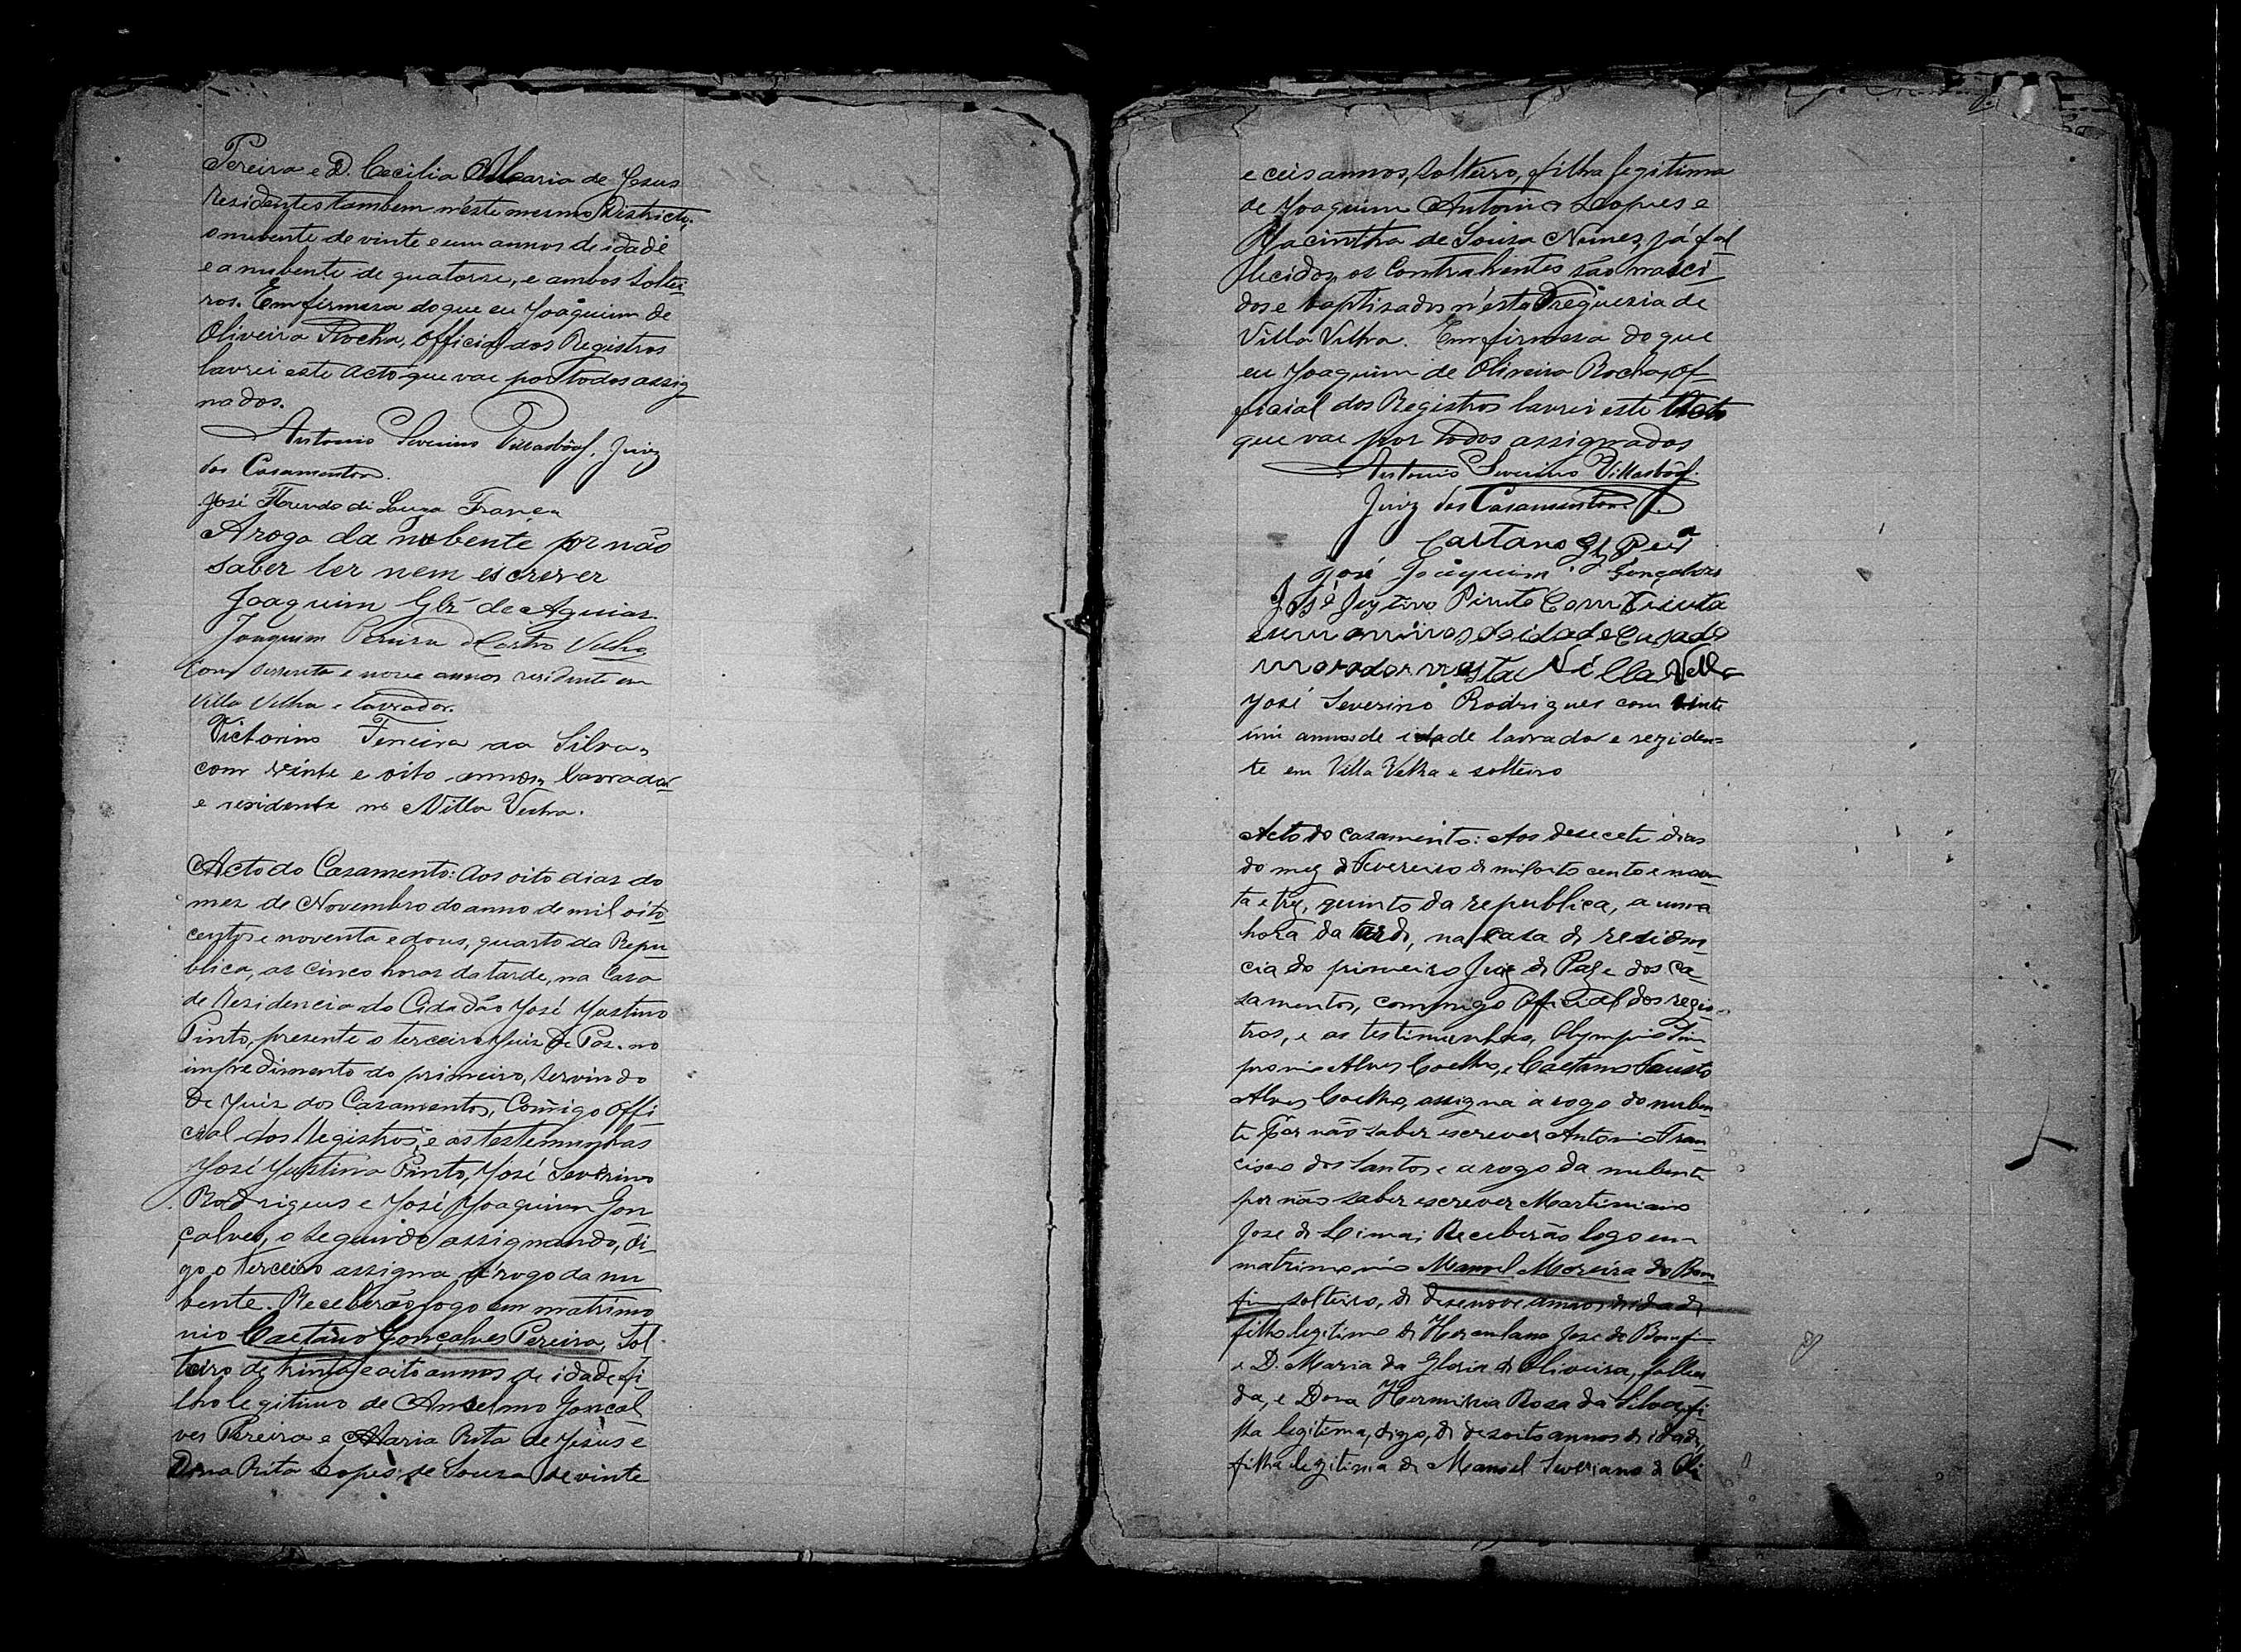 Pereira e D. Cecilia Maria de Jesus
residentes tambem n'este mesmo Districto,
o nubente de vinte e um annos de idade
e a nubente de quatorse, e ambos soltei
ros. Em firmesa do que eu Joaquim de
Oliveira Rocha, official dos Registros
lavrei este acto que vae por todos assig
nados.
Antonio Severino Villasbôas, Juiz
dos Casamentos.
José Florindo de Souza França
A rogo da nubente por não
saber ler nem escrever
Joaquim Glz de Aguiar
Joaquim Pereira de Castro Velho
com sessenta e nove annos residente em
Villa Velha e lavrador.
Victorino Ferreira da Silva,
com vinte e oito annos, lavrador
e residente na Villa Velha.
Acto do Casamento: Aos oito dias do
mez de Novembro do anno de mil oito
centos e noventa e dous, quarto da Repu
blica, as cinco horas da tarde, na Casa
de Residencia do Cidadão José Justino
Pinto, presente o terceiro Juiz de Paz no
impedimento do primeiro, servindo
de Juiz dos Casamentos, Comigo Offi
cial dos Registros, e as testemunhas
José Justino Pinto, José Severino
Rodrigues e José Joaquim Gon
çalves, o seguindo assignando, di
go o terceiro assigna á rogo da nu
bente. Receberão logo em matrimo
nio Caetano Gonçalves Pereira, Sol
teiro de trinta e oito annos de idade fi
lho legitimo de Anselmo Gonçal
ves Pereira e Maria Rita de Jesus e
Dona Rita Lopes de Souza de vinte
e ceis annos, solteiro, filha legitima
de Joaquim Antonio Lopes e
Jacintha de Souza Nunes, já fal
lecidos, os contrahentes são nasci
dos e baptisados n'esta Freguesia de
Villa Velha. Em firmesa do que
eu Joaquim de Oliveira Rocha, of
ficial dos Registros lavrei este Acto
que vae por todos assignados
Antonio Severino Villasbôas
Juiz dos Casamentos
Caetano Gl Per.a
José Joaquim Gonçalves
José Justino Pinto Com trinta
e um annos de idade Cazado
morador nesta Villa Velha
José Severino Rodrigues com vinte
um annos de idade lavrador e rezidem=
te em Villa Velha e solteiro
Acto do casamento: Aos desecete dias
do mez de Fevereiro de mil oito cento e noven
ta e trez, quinto da republica, a uma
hora da tarde, na casa de residen
cia do primeiro Juiz de Paz e dos ca
samentos, commigo Official dos regis
tros, e as testimunhas, Olympio Sim
pronio Alves Coelho, e Caetano Fausto
Alves Coelho, assigna a rogo do nuben
te por não saber escrever Antonio Fran
cisco dos Santos e a rogo da nubente
por não saber escrever Martiniano
Jose de Lima; Receberão logo em
matrimonio Manoel Moreira do Bom
fim solteiro, de desenove annos de idade,
filho legitimo de Herculano Jose do Bomfim
e D. Maria da Gloria de Oliveira, falleci
da, e Dona Herminia Rosa da Silva, fi
lha legitima, digo, de desoito annos de idade,
filha legitima de Manoel Severiano de Oli